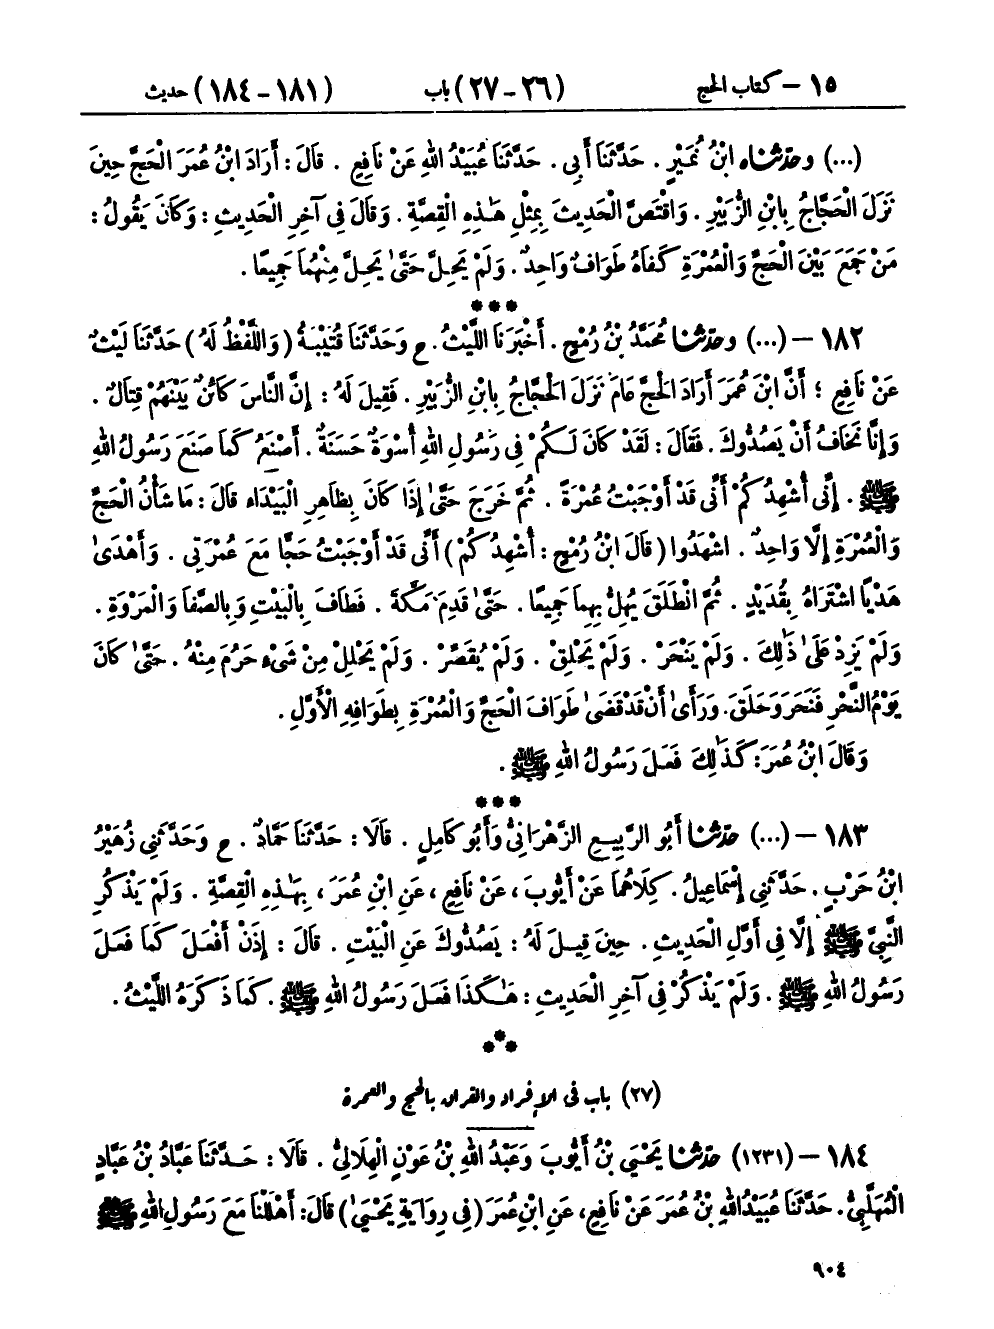 ١٥ – كتاب الحج (٢٦ – ٢٧) باب (١٨١ – ١٨٤) حديث
(...) وحدّثناه ابْنُ نُمَيْرٍ . حَدَّثَنَا أَبِي . حَدَّثَنَا عُبَيْدُ اللهِ عَنْ نَافِعٍ . قَالَ : أَرَادَ ابْنُ عُمَرَ الْحَجَّ حِينَ
نَزَلَ الْحَجَّاجُ بِابْنِ الزُّبَيْرِ . وَاقْتَصَّ الْحَدِيثَ بِمِثْلِ هَٰذِهِ الْقِصَّةِ . وَقَالَ فِي آخِرِ الْحَدِيثِ : وَكَانَ يَقُولُ :
مَنْ جَمَعَ بَيْنَ الْحَجِّ وَالْعُمْرَةِ كَفَاهُ طَوَافٌ وَاحِدٌ . وَلَمْ يَحِلَّ حَتَّىٰ يَحِلَّ مِنْهُمَا جَمِيعًا .
***
١٨٢ – (...) وحدّثنا مُحَمَّدُ بْنُ رُمْحٍ . أَخْبَرَنَا اللَّيْثُ . ح وَحَدَّثَنَا قُتَيْبَةُ ( وَاللَّفْظُ لَهُ ) حَدَّثَنَا لَيْثٌ
عَنْ نَافِعٍ ؛ أَنَّ ابْنَ عُمَرَ أَرَادَ الْحَجَّ عَامَ نَزَلَ الْحَجَّاجُ بِابْنِ الزُّبَيْرِ . فَقِيلَ لَهُ : إِنَّ النَّاسَ كَائِنٌ بَيْنَهُمْ قِتَالٌ .
وَإِنَّا نَخَافُ أَنْ يَصُدُّوكَ . فَقَالَ : لَقَدْ كَانَ لَكُمْ فِي رَسُولِ اللهِ أُسْوَةٌ حَسَنَةٌ . أَصْنَعُ كَمَا صَنَعَ رَسُولُ اللهِ
ﷺ . إِنِّي أُشْهِدُكُمْ أَنِّي قَدْ أَوْجَبْتُ عُمْرَةً . ثُمَّ خَرَجَ حَتَّىٰ إِذَا كَانَ بِظَاهِرِ الْبَيْدَاءِ قَالَ : مَا شَأْنُ الْحَجِّ
وَالْعُمْرَةِ إِلَّا وَاحِدٌ . اشْهَدُوا ( قَالَ ابْنُ رُمْحٍ : أُشْهِدُكُمْ ) أَنِّي قَدْ أَوْجَبْتُ حَجًّا مَعَ عُمْرَتِي . وَأَهْدَىٰ
هَدْيًا اشْتَرَاهُ بِقُدَيْدٍ . ثُمَّ انْطَلَقَ يُهِلُّ بِهِمَا جَمِيعًا . حَتَّىٰ قَدِمَ مَكَّةَ . فَطَافَ بِالْبَيْتِ وَبِالصَّفَا وَالْمَرْوَةِ .
وَلَمْ يَزِدْ عَلَىٰ ذَٰلِكَ . وَلَمْ يَنْحَرْ . وَلَمْ يَحْلِقْ . وَلَمْ يُقَصِّرْ . وَلَمْ يَحْلِلْ مِنْ شَيْءٍ حَرُمَ مِنْهُ . حَتَّىٰ كَانَ
يَوْمُ النَّحْرِ فَنَحَرَ وَحَلَقَ . وَرَأَىٰ أَنْ قَدْ قَضَىٰ طَوَافَ الْحَجِّ وَالْعُمْرَةِ بِطَوَافِهِ الْأَوَّلِ .
وَقَالَ ابْنُ عُمَرَ : كَذَٰلِكَ فَعَلَ رَسُولُ اللهِ ﷺ .
***
١٨٣ – (...) حدّثنا أَبُو الرَّبِيعِ الزَّهْرَانِيُّ وَأَبُو كَامِلٍ . قَالَا : حَدَّثَنَا حَمَّادٌ . ح وَحَدَّثَنِي زُهَيْرُ
ابْنُ حَرْبٍ . حَدَّثَنِي إِسْمَاعِيلُ . كِلَاهُمَا عَنْ أَيُّوبَ ، عَنْ نَافِعٍ ، عَنِ ابْنِ عُمَرَ ، بِهَٰذِهِ الْقِصَّةِ . وَلَمْ يَذْكُرِ
النَّبِيَّ ﷺ إِلَّا فِي أَوَّلِ الْحَدِيثِ . حِينَ قِيلَ لَهُ : يَصُدُّوكَ عَنِ الْبَيْتِ . قَالَ : إِذَنْ أَفْعَلَ كَمَا فَعَلَ
رَسُولُ اللهِ ﷺ . وَلَمْ يَذْكُرْ فِي آخِرِ الْحَدِيثِ : هَٰكَذَا فَعَلَ رَسُولُ اللهِ ﷺ . كَمَا ذَكَرَهُ اللَّيْثُ .
***
(٢٧) باب في الإفراد والقران بالحج والعمرة
١٨٤ – (١٢٣١) حدّثنا يَحْيَىٰ بْنُ أَيُّوبَ وَعَبْدُ اللهِ بْنُ عَوْنٍ الْهِلَالِيُّ . قَالَا : حَدَّثَنَا عَبَّادُ بْنُ عَبَّادٍ
الْمُهَلَّبِيُّ . حَدَّثَنَا عُبَيْدُ اللهِ بْنُ عُمَرَ عَنْ نَافِعٍ ، عَنِ ابْنِ عُمَرَ ( فِي رِوَايَةِ يَحْيَىٰ ) قَالَ : أَهْلَلْنَا مَعَ رَسُولِ اللهِ ﷺ
٩٠٤